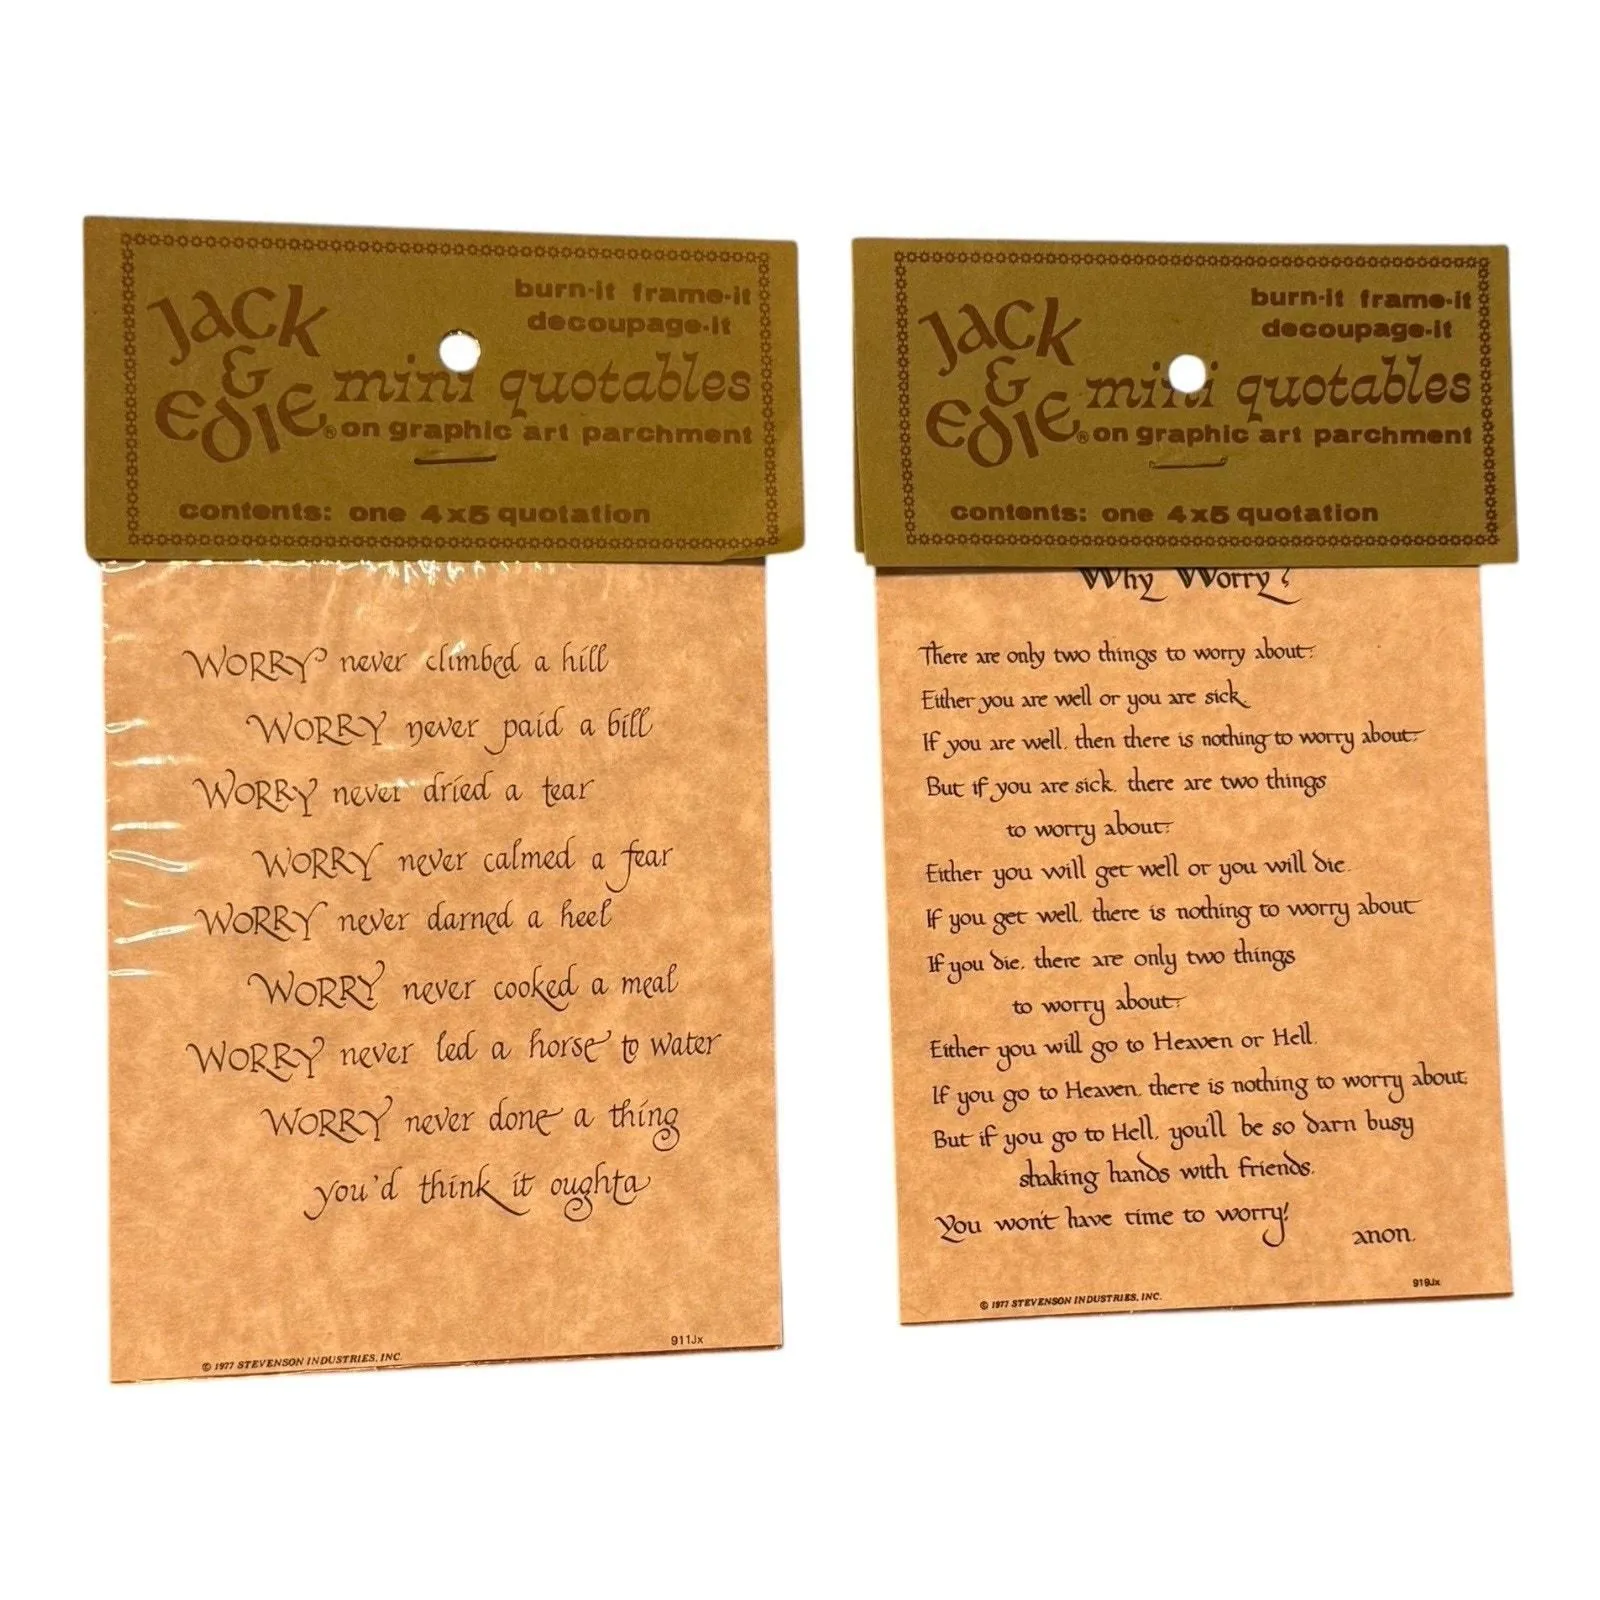 Jack & Edie®
burn-it frame-it
decoupage-it
mini quotables
on graphic art parchment
contents: one 4x5 quotation
WORRY never climbed a hill
WORRY never paid a bill
WORRY never dried a tear
WORRY never calmed a fear
WORRY never darned a heel
WORRY never cooked a meal
WORRY never led a horse to water
WORRY never done a thing
you'd think it oughta
911Jx
© 1977 STEVENSON INDUSTRIES, INC.
Jack & Edie®
burn-it frame-it
decoupage-it
mini quotables
on graphic art parchment
contents: one 4x5 quotation
Why Worry?
There are only two things to worry about:
Either you are well or you are sick.
If you are well, then there is nothing to worry about:
But if you are sick, there are two things
to worry about:
Either you will get well or you will die.
If you get well, there is nothing to worry about
If you die, there are only two things
to worry about:
Either you will go to Heaven or Hell.
If you go to Heaven, there is nothing to worry about.
But if you go to Hell, you'll be so darn busy
shaking hands with friends.
You won't have time to worry!
anon.
919Jx
© 1977 STEVENSON INDUSTRIES, INC.